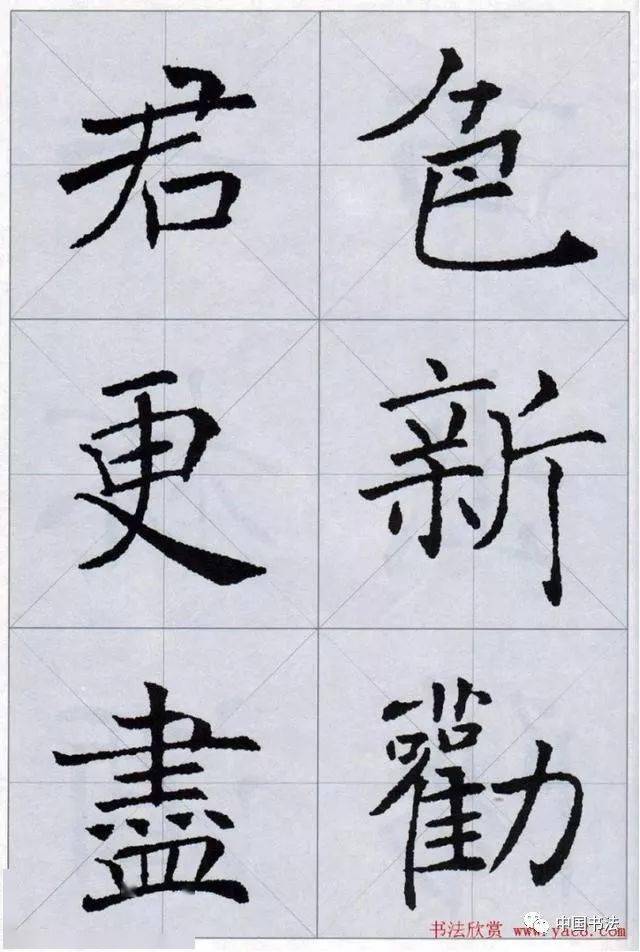 色新勸
君更盡
中国书法
书法欣赏 www.yac8.com